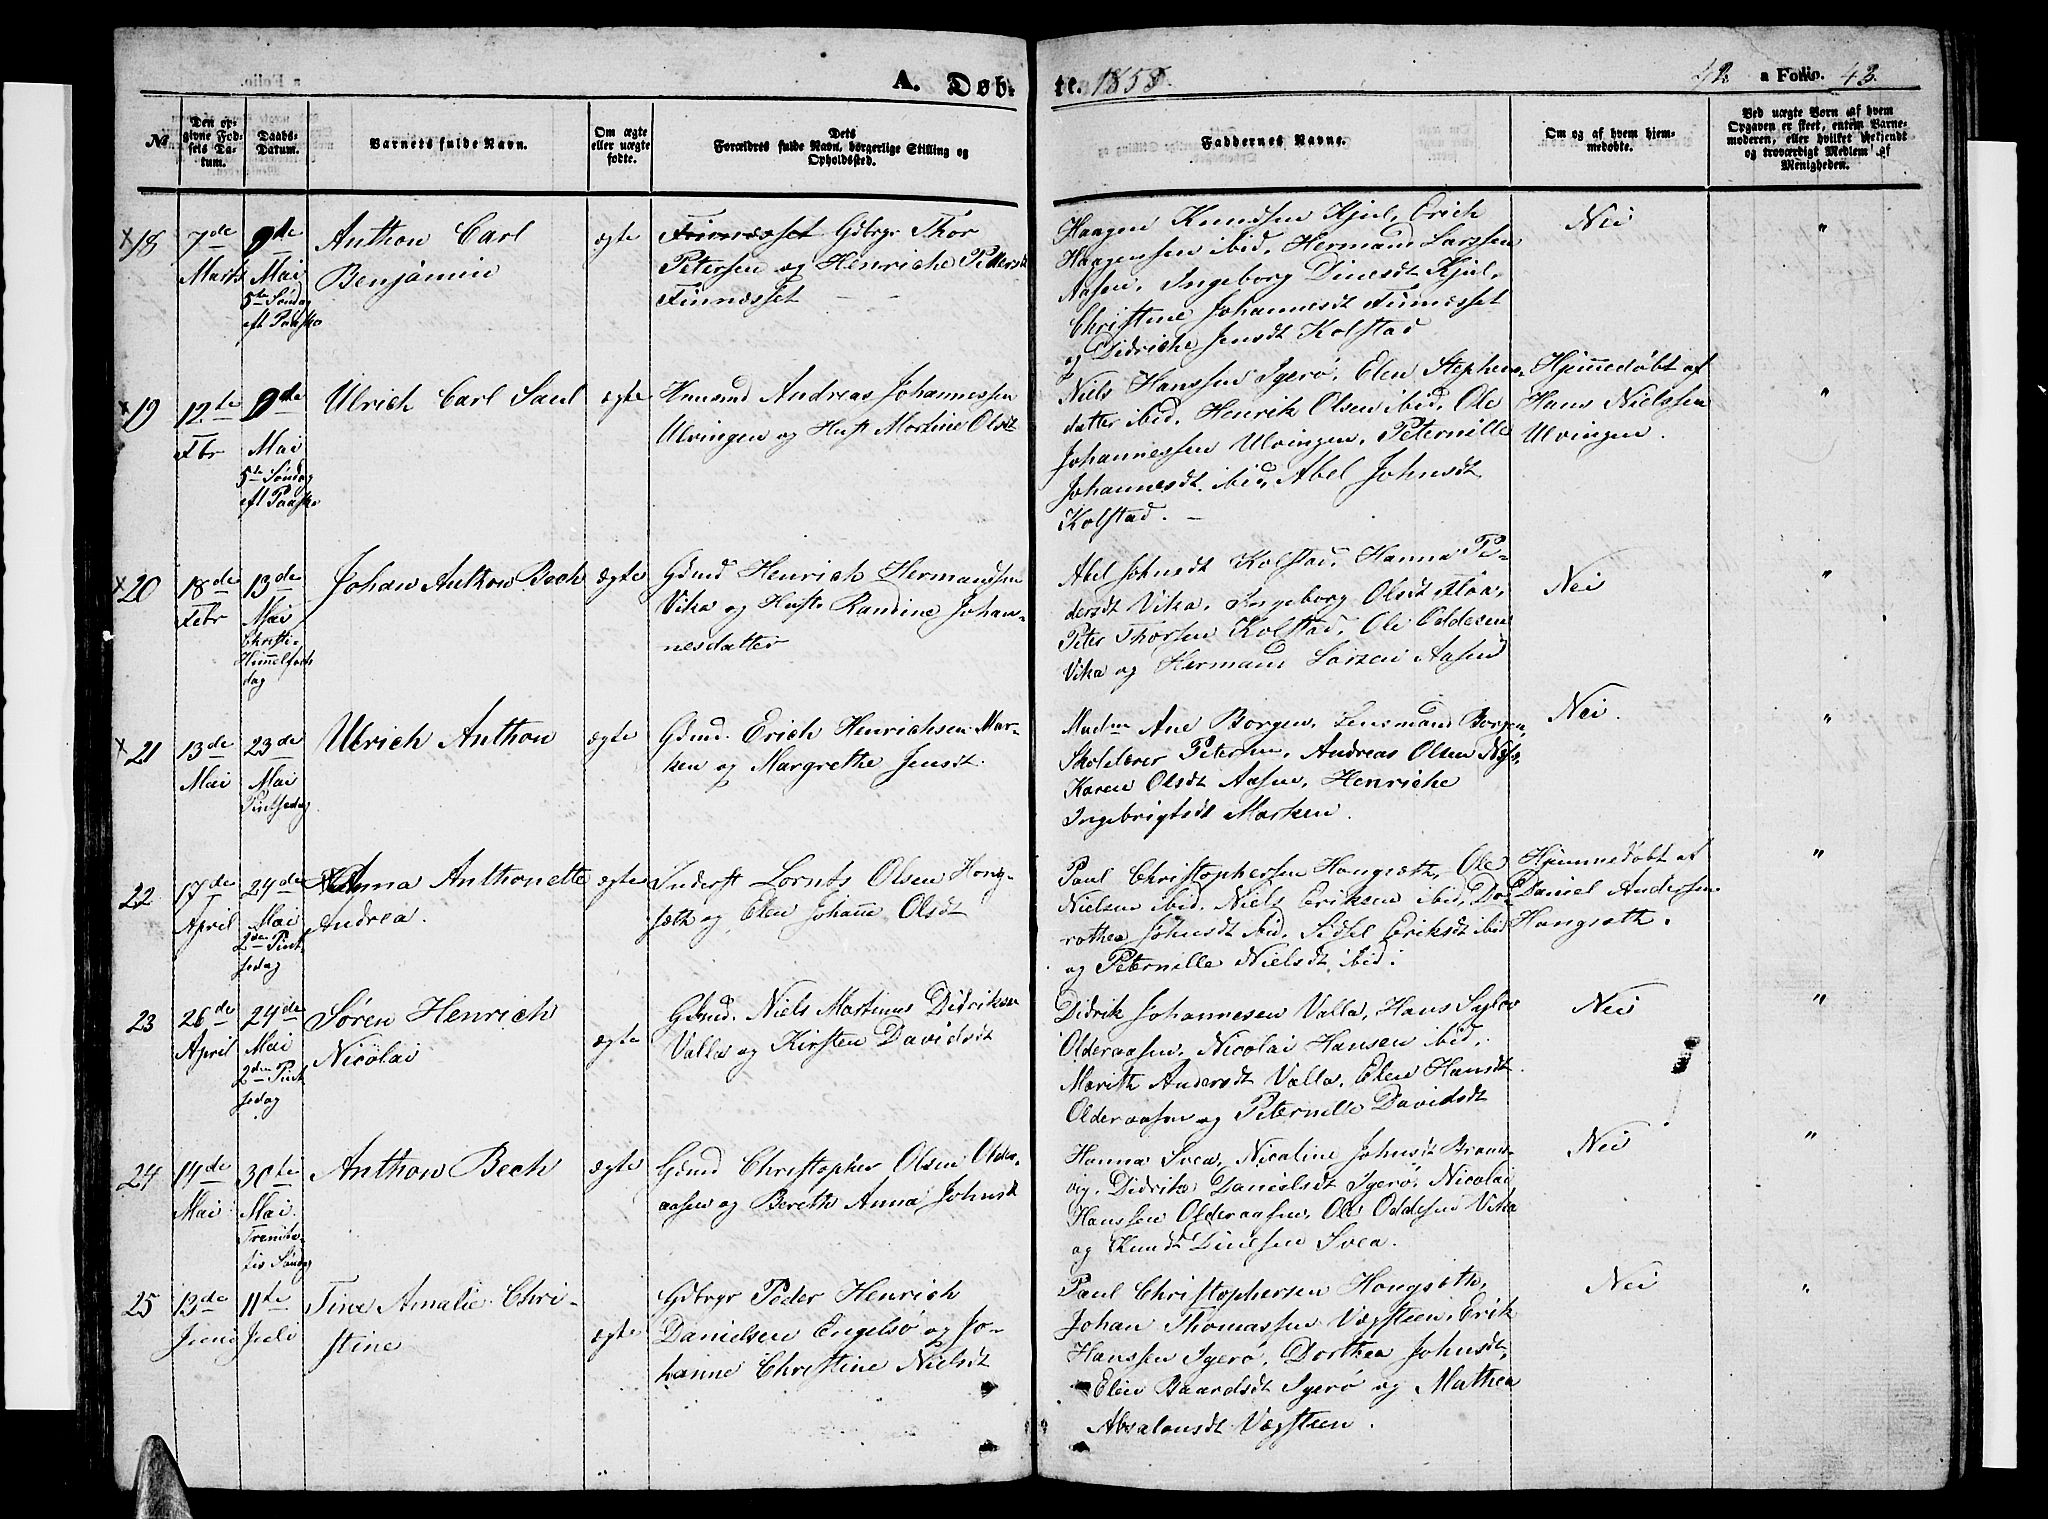 A. Døb-
te. 1858.
42 a Folio. 42
No.
Den opgivne Fødsels Datum.
Daabs-Datum.
Barnets fulde Navn.
Om ægte eller uægte fødte.
Dets Forældres fulde Navn, borgerlige Stilling og Opholdssted.
Faddernes Navne.
Om og af hvem hjemmedøbte.
Ved uægte Børn af hvem Opgaven er skeet, enten Barnemoderen, eller hvilket bekjendt og troværdigt Medlem af Menigheden.
x 18
7de
Marts
9de
Mai
5te Søndag
eft Paaske
Anthon Carl
Benjamin
ægte
Finnæsset Gdbrgr Thor
Petersen og Henriche Pettersdt
Finnæsset
Haagen Knudsen Kjul, Erich
Haagensen ibid, Hermand Larssen
Aasen, Ingeborg Dinesdt Kjul,
Christine Johannesdt Finnæsset
og Didriche Jensdt Kolstad
Nei
"
x 19
12te
Fbr
9de
Mai
5te Søndag
eft Paaske
Ulrich Carl Saul
ægte
Huusmd Andreas Johannessen
Ulvingen og Hust Martine Olsdt
Niels Hanssen Igerø, Elen Stephens-
datter ibid, Henrik Olsen ibid, Ole
Johannessen Ulvingen, Peternille
Johannesdt. ibid, Abel Johnsdt
Kolstad. —
Hjemmedøbt af
Hans Nielssen
Ulvingen.
"
x 20
18de
Febr
13de
Mai
Christi-
Himmelfarts
dag
Johan Anthon Bech
ægte
Gdmd Henrich Hermandsen
Vika og Hust. Randine Johan-
nesdatter
Abel Johnsdt Kolstad, Hanna Pe-
dersdt Vika, Ingeborg Olsdt Floa,
Peter Thorsen Kolstad, Ole Oddesen
Vika og Hermand Larsen Aasen
Nei
"
x 21
13de
Mai
23de
Mai
Pintsedag
Ulrich Anthon
ægte
Gdmd. Erich Henrichsen Mar-
ken og Margrethe Jensdt.
Madm Ane Borgen, Lensmand Borgen,
Skolelærer Petersen, Andreas Olsen
Karen Olsdt Aasen, Henriche
Ingebrigtsdt Marken.
Nei.
"
22
17de
April
24de
Mai
2den Pint
sedag
Anna Anthonette
Andrea.
ægte
Inderst Lornts Olsen Hong-
sæth og Elen Johanne Olsdt
Paul Christophersen Hongsæth, Ole
Nielsen ibid, Niels Eriksen ibid, Do-
rothea Johnsdt ibid, Sidsel Eriksdt ibid
og Peternille Nielsdt ibid.
Hjemmedøbt af
Daniel Andersen
Hongsæth.
"
23
26de
April
24de
Mai
2den Pint
sedag
Søren Henrich
Nicolai
ægte
Gdmd. Niels Martinus Didriksen
Valla og Kirsten Davidsdt
Didrik Johannesen Valla, Hans
Olderaasen, Nicolai Hansen ibid,
Marith Andersdt Valla, Elen Hansdt.
Olderaasen og Peternille Davidsdt
Nei
"
24
14de
Mai
30te
Mai.
Trenita-
tis Søndag
Anthon Bech
ægte
Gdmd Christopher Olsen Older-
aasen og Bereth Anna Johnsdt
Hanna Svea, Nicoline Johnsdt Brans-
vig, Didrika Danielsdt Igerø, Nicolai
Hanssen Olderaasen, Ole Oddesen Vika
og Knudt Dinesen Svea.
Nei
"
25
13de
Juni
11te
Juli
Tine Amalie Chri-
stine
ægte
Gdbrgr Peder Henrich
Danielsen Engelsø og Jo-
hanne Christine Nielsdt
Paul Christophersen Hongsæth,
Johan Thomassen Vægsteen, Erik
Hanssen Igerø, Dorthea Johnsdt,
Elen Baardsdt Igerø og Mathea
Absalonsdt Vægsteen.
Nei
"